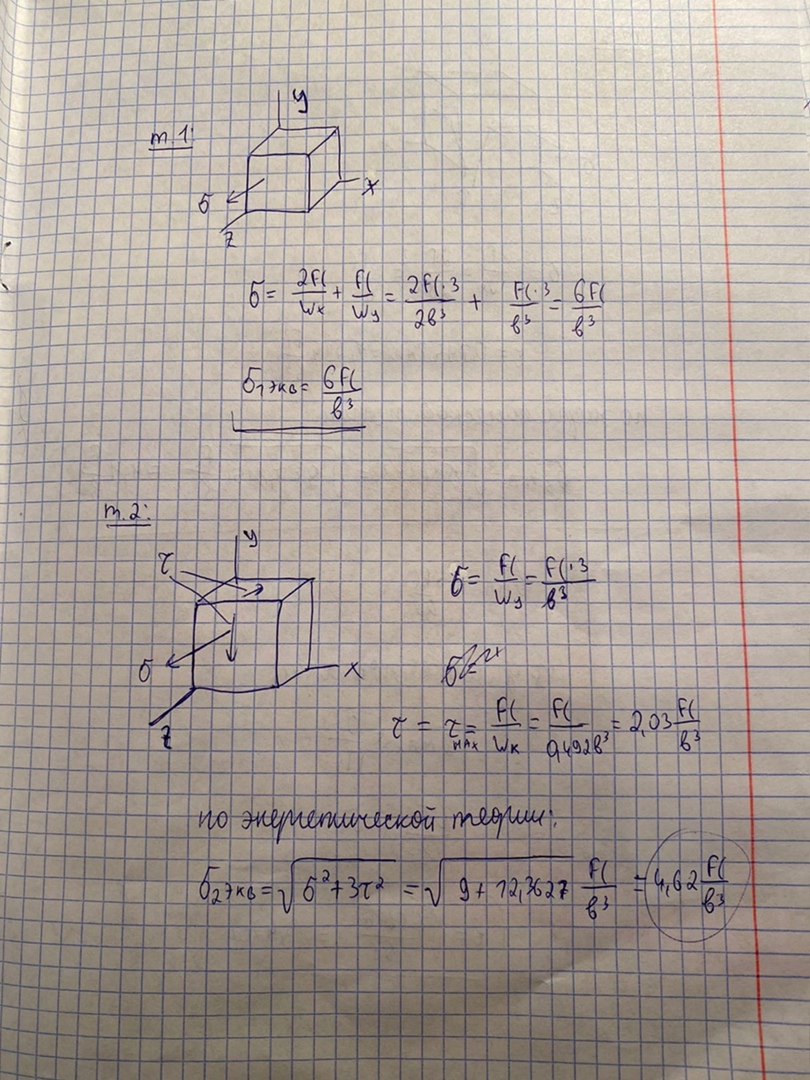 y
т.1:
x
σ
z
σ = 2Fl/Wx + Fl/Wy = 2Fl·3/2b³ + Fl·3/b³ = 6Fl/b³
σ1экв = 6Fl/b³
т.2:
y
τ
σ = Fl/Wy = Fl·3/b³
σ
x
z
τ = τmax = Fl/Wк = Fl/0,492b³ = 2,03 Fl/b³
по энергетической теории:
σ2экв = √(σ²+3τ²) = √(9+12,3627) Fl/b³ = 4,62 Fl/b³